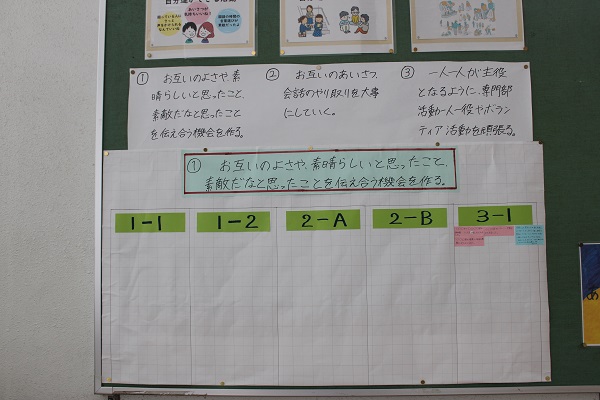 ① お互いのよさや、素
晴らしいと思ったこと、
素敵だなと思ったこと
を伝え合う機会を作る。
② お互いのあいさつ、
会話のやり取りを大事
にしていく。
③ 一人一人が主役
となるように、専門部
活動一人一役やボラン
ティア活動を頑張る。
① お互いのよさや、素晴らしいと思ったこと、
素敵だなと思ったことを伝え合う機会を作る。
1-1
1-2
2-A
2-B
3-1
あ